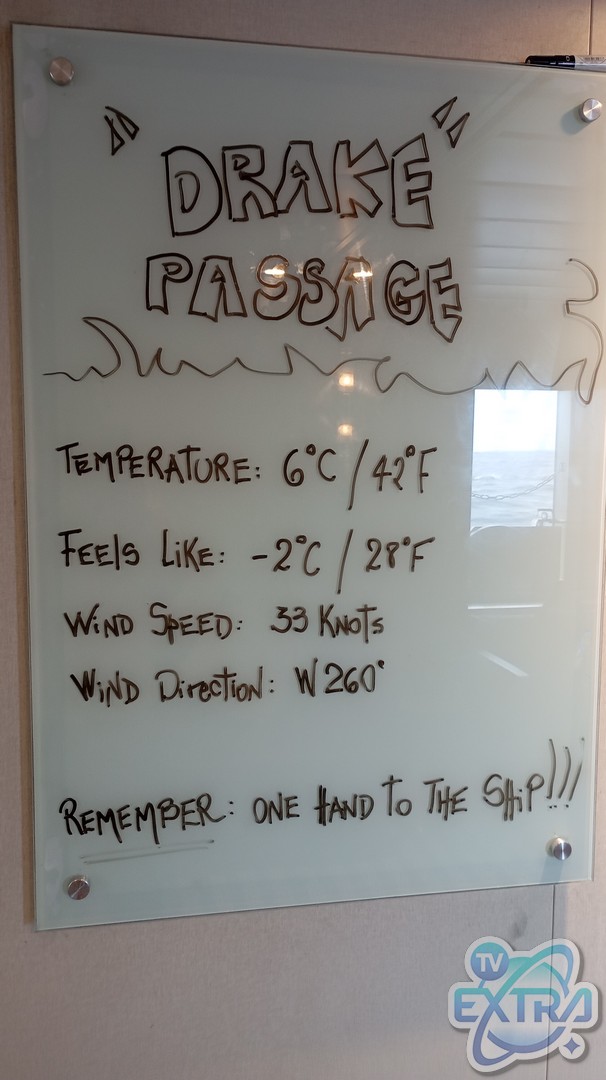 "DRAKE"
PASSAGE
TEMPERATURE: 6°C / 42°F
FEELS LIKE: -2°C / 28°F
WIND SPEED: 33 KNOTS
WIND DIRECTION: W 260°
REMEMBER: ONE HAND TO THE SHIP!!!
TV
EXTRA